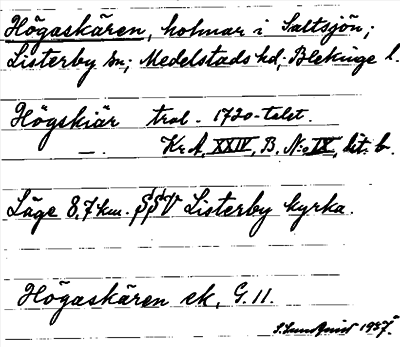 Högaskären, holmar i Saltsjön;
Listerby sn; Medelstads hd; Blekinge l.
Högskiär trol. 1720-talet.
—. Kr A, XXIV, B. No IX, lit: b.
Läge 8,7 km. SSV Listerby kyrka.
Högaskären ek, G. 11.
1937